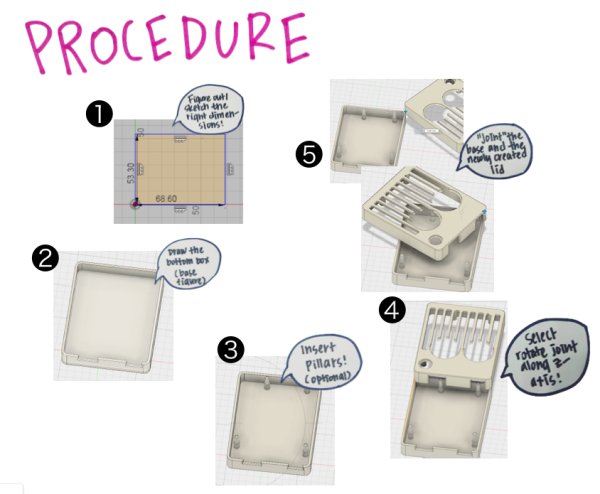 PROCEDURE
1
Figure out/
sketch the
right dimen-
sions!
50
53.30
68.60
50
2
Draw the
bottom box
(base
figure)
3
Insert
Pillars!
(optional)
4
Select
rotate joint
along z-
atis!
5
"Joint" the
base and the
newly created
lid